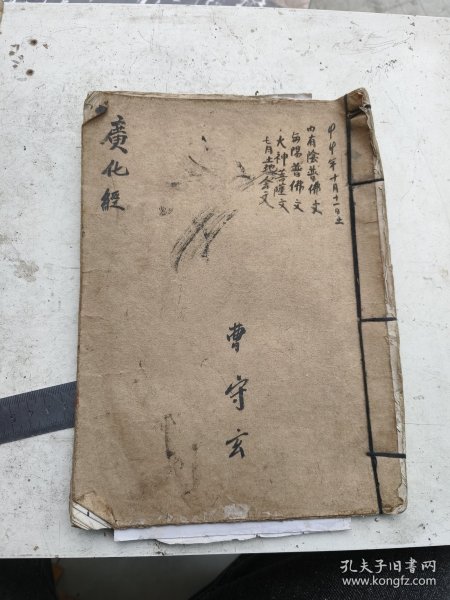 廣化經
甲申年十月十一日立
内有陰普佛文
每陽普佛文
火神菩薩文
七月土地会文
曹守玄
孔夫子旧书网
www.kongfz.com